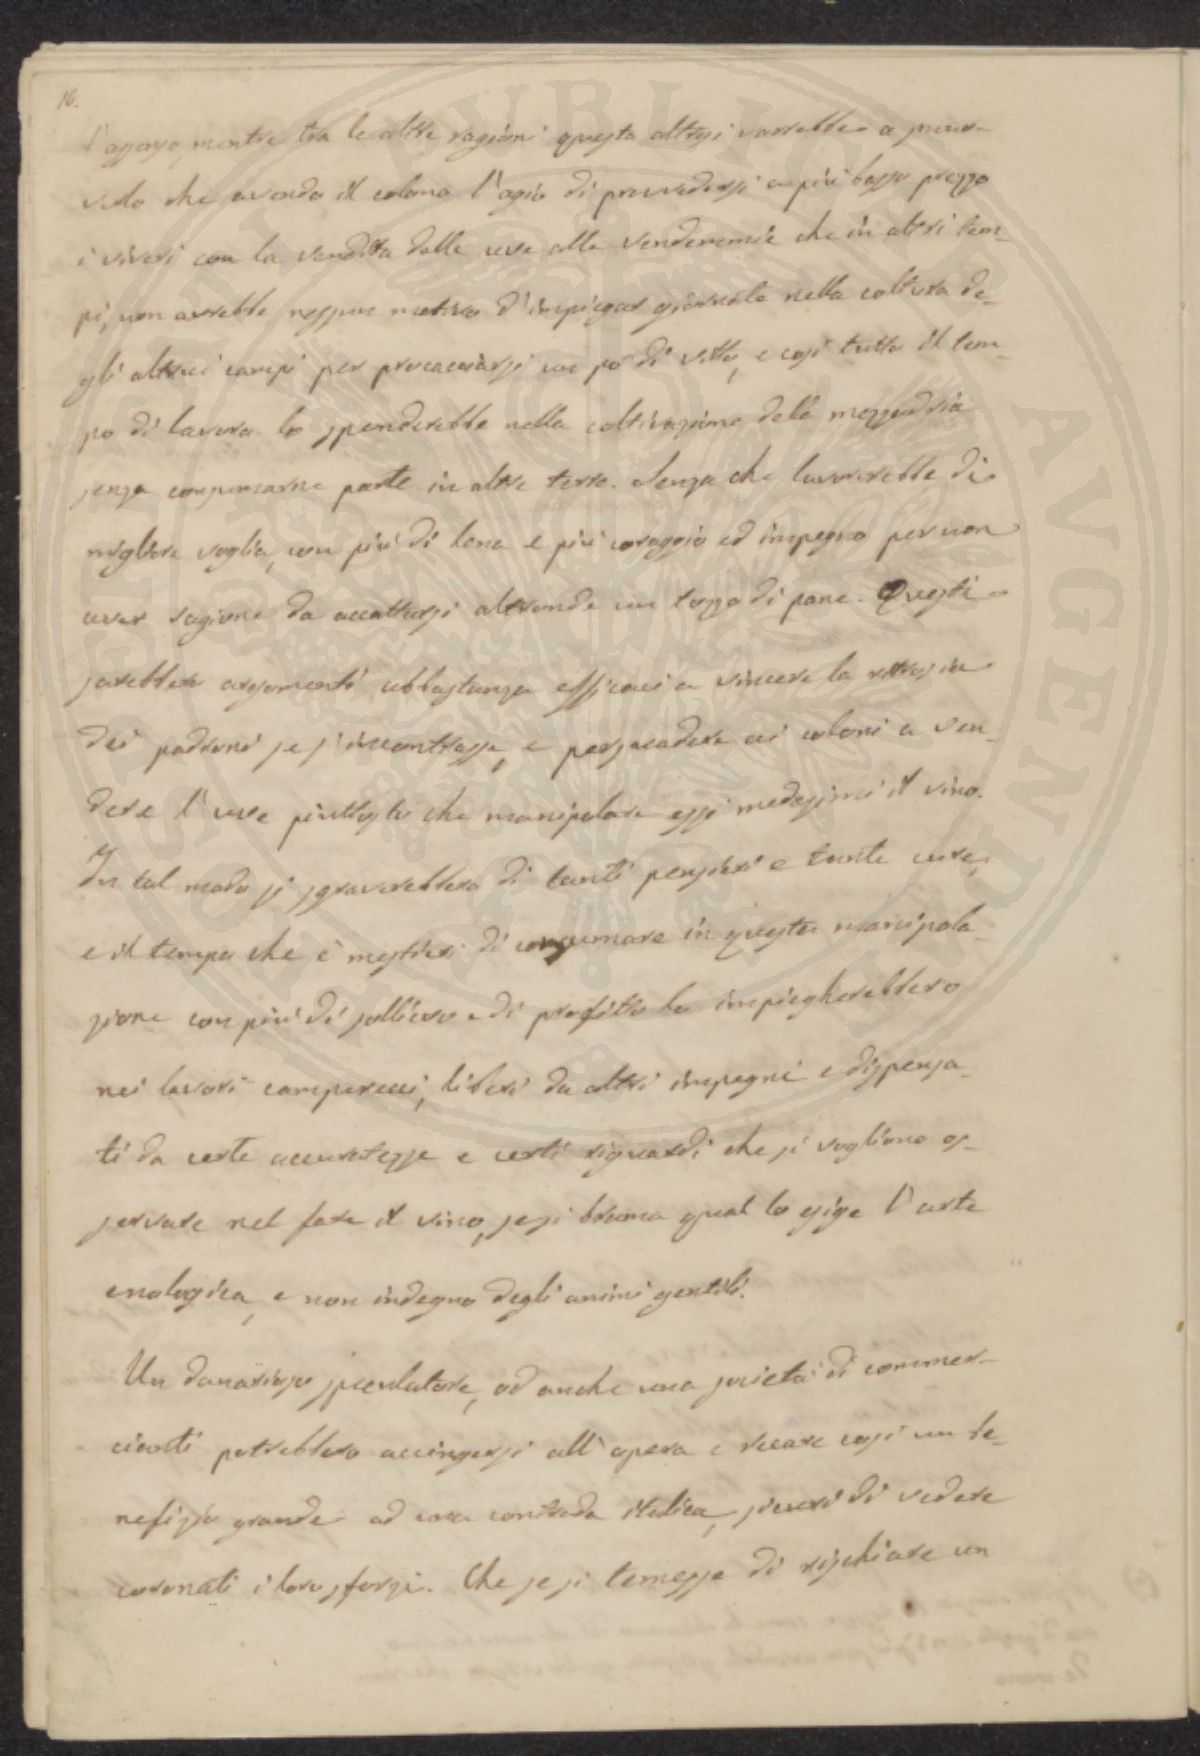 16.
l'assaggio, mentre tra le altre ragioni questa altresì varrebbe a
che avendo il colono l'agio di provvedersi a più basso prezzo
i viveri con la vendita delle uve alle vendemmie che in altri tem-
pi, non avrebbe nessun motivo d'impiegar giornate nella coltura de-
gli altrui campi per procacciarsi un po' di vitto, e così tutto il tem-
po di lavoro lo spenderebbe nella coltivazione della mezzadria
senza consumarne parte in altre terre. Senza che lavorerebbe di
migliore voglia, con più di lena e più coraggio ed impegno per non
aver ragione da accattarsi altronde un tozzo di pane. Questi
sarebbero argomenti abbastanza efficaci a vincere la ritrosia
dei padroni se s'incontrasse, e persuadere ai coloni a ven-
dere l'uve piuttosto che manipolare essi medesimi il vino.
In tal modo si sgraverebbero di tanti pensieri e tante cure,
e il tempo che è mestieri di consumare in questa manipola-
zione con più di sollievo e di profitto lo impiegherebbero
nei lavori camperecci, liberi da altri impegni e dispensa-
ti da certe accuratezze e certi riguardi che si vogliono os-
servare nel fare il vino, se si brama qual lo esige l'arte
enologica, e non indegno degli animi gentili.
Un danaroso speculatore, od anche una società di commer-
cianti potrebbero accingersi all'opera e recare così un be-
nefizio grande ad una contrada italica, sicuri di vedere
coronati i loro sforzi. Che se si temesse di rischiare un
VBLICE AVGENDAE